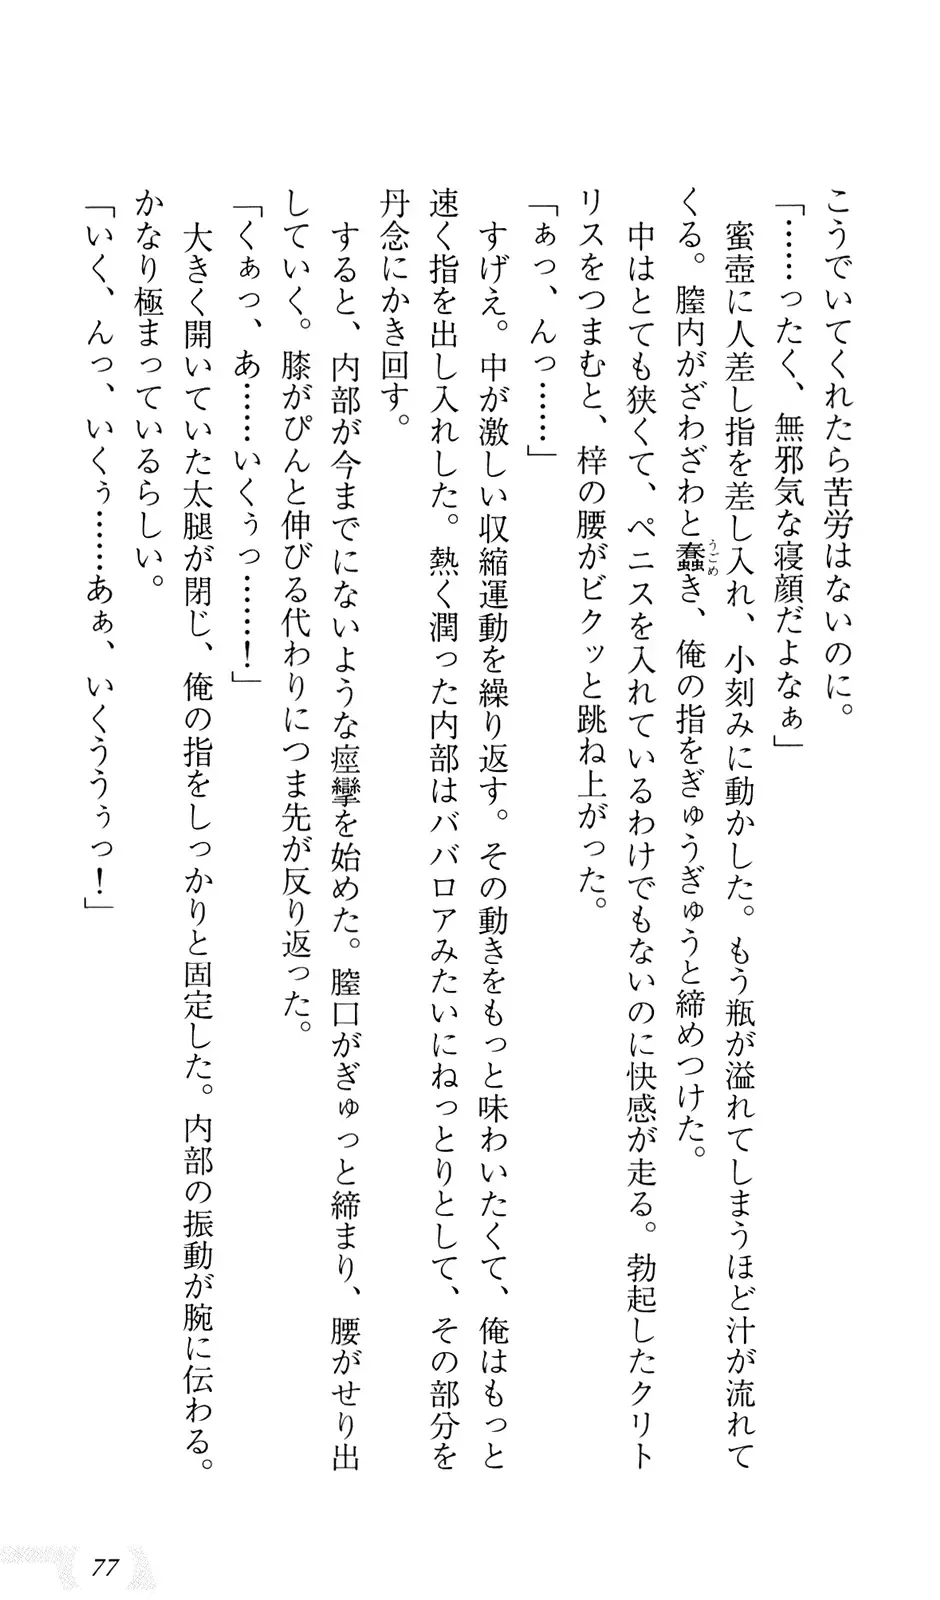 こうでいてくれたら苦労はないのに。
「……ったく、無邪気な寝顔だよなぁ」
蜜壺に人差し指を差し入れ、小刻みに動かした。もう瓶が溢れてしまうほど汁が流れて
くる。膣内がざわざわと蠢き、俺の指をぎゅうぎゅうと締めつけた。
うごめ
中はとても狭くて、ペニスを入れているわけでもないのに快感が走る。勃起したクリト
リスをつまむと、梓の腰がビクッと跳ね上がった。
「ぁっ、んっ……」
すげえ。中が激しい収縮運動を繰り返す。その動きをもっと味わいたくて、俺はもっと
速く指を出し入れした。熱く潤った内部はババロアみたいにねっとりとして、その部分を
丹念にかき回す。
すると、内部が今までにないような痙攣を始めた。膣口がぎゅっと締まり、腰がせり出
していく。膝がぴんと伸びる代わりにつま先が反り返った。
「くぁっ、あ……いくぅっ……！」
大きく開いていた太腿が閉じ、俺の指をしっかりと固定した。内部の振動が腕に伝わる。
かなり極まっているらしい。
「いく、んっ、いくぅ……あぁ、いくううぅっ！」
77